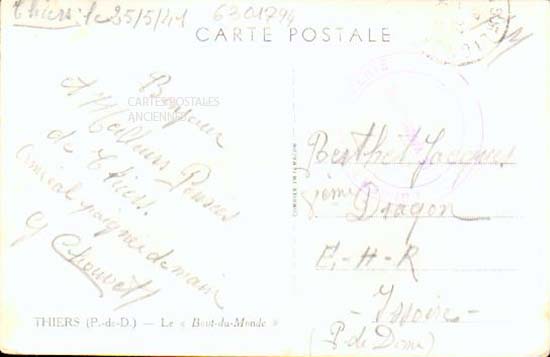 Thiers le 25/5/41
6301794
CARTE POSTALE
CARTES POSTALES
ANCIENNES
Bonjour
et Meilleurs Pensées
de Thiers.
Amical poignée de main
G Chouvet
Berthet Jacques
8ème Dragon
E.-H-R
- Issoire -
(P-de Dome)
THIERS (P.-de-D.) — Le « Bout-du-Monde »